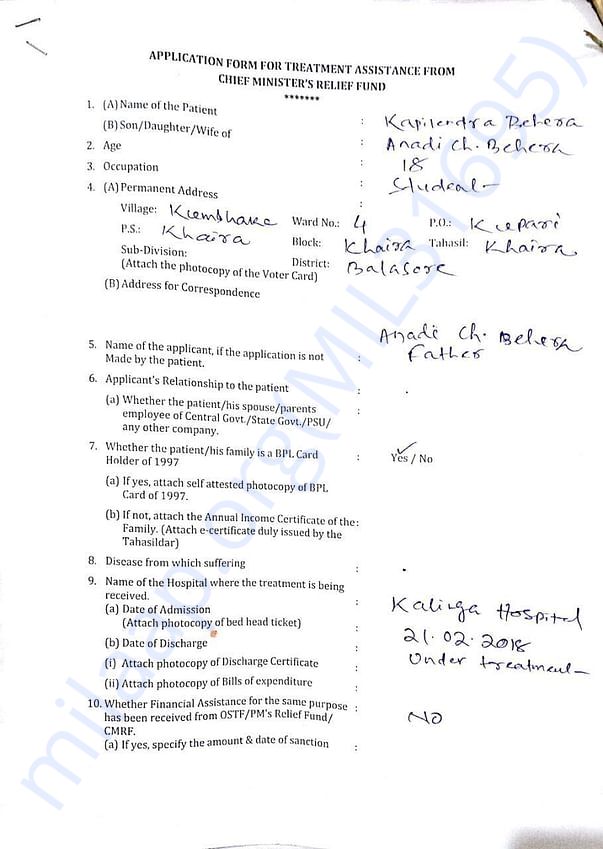 APPLICATION FORM FOR TREATMENT ASSISTANCE FROM
CHIEF MINISTER'S RELIEF FUND
*******
1. (A) Name of the Patient : Kapilendra Behera
(B) Son/Daughter/Wife of : Anadi Ch. Behera
2. Age : 18
3. Occupation : Student
4. (A) Permanent Address :
Village: Kumbhake Ward No.: 4 P.O.: Kupari
P.S.: Khaira Block: Khaira Tahasil: Khaira
Sub-Division: District: Balasore
(Attach the photocopy of the Voter Card)
(B) Address for Correspondence
5. Name of the applicant, if the application is not : Anadi Ch. Behera
Made by the patient. Father
6. Applicant's Relationship to the patient : .
(a) Whether the patient/his spouse/parents :
employee of Central Govt./State Govt./PSU/
any other company.
7. Whether the patient/his family is a BPL Card : Yes / No
Holder of 1997
(a) If yes, attach self attested photocopy of BPL
Card of 1997.
(b) If not, attach the Annual Income Certificate of the:
Family. (Attach e-certificate duly issued by the
Tahasildar)
8. Disease from which suffering : .
9. Name of the Hospital where the treatment is being : Kalinga Hospital
received.
(a) Date of Admission : 21.02.2018
(Attach photocopy of bed head ticket)
(b) Date of Discharge : Under treatment
(i) Attach photocopy of Discharge Certificate :
(ii) Attach photocopy of Bills of expenditure :
10. Whether Financial Assistance for the same purpose : NO
has been received from OSTF/PM's Relief Fund/
CMRF.
(a) If yes, specify the amount & date of sanction :
milaap.org(MIL31695)